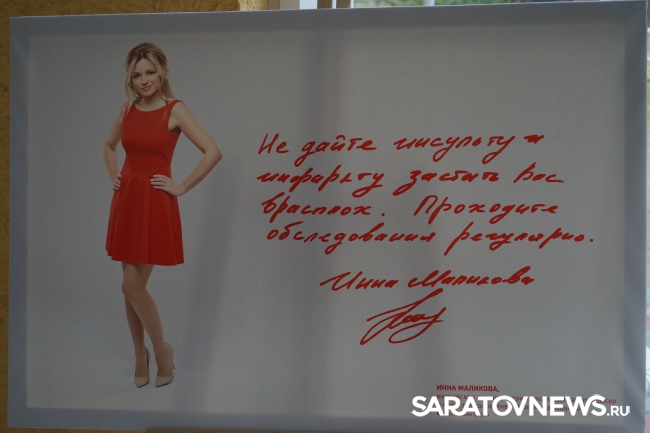 Не дайте инсульту и
инфаркту застать Вас
врасплох. Проходите
обследования регулярно.
Инна Маликова
ИННА МАЛИКОВА,
SARATOVNEWS.RU